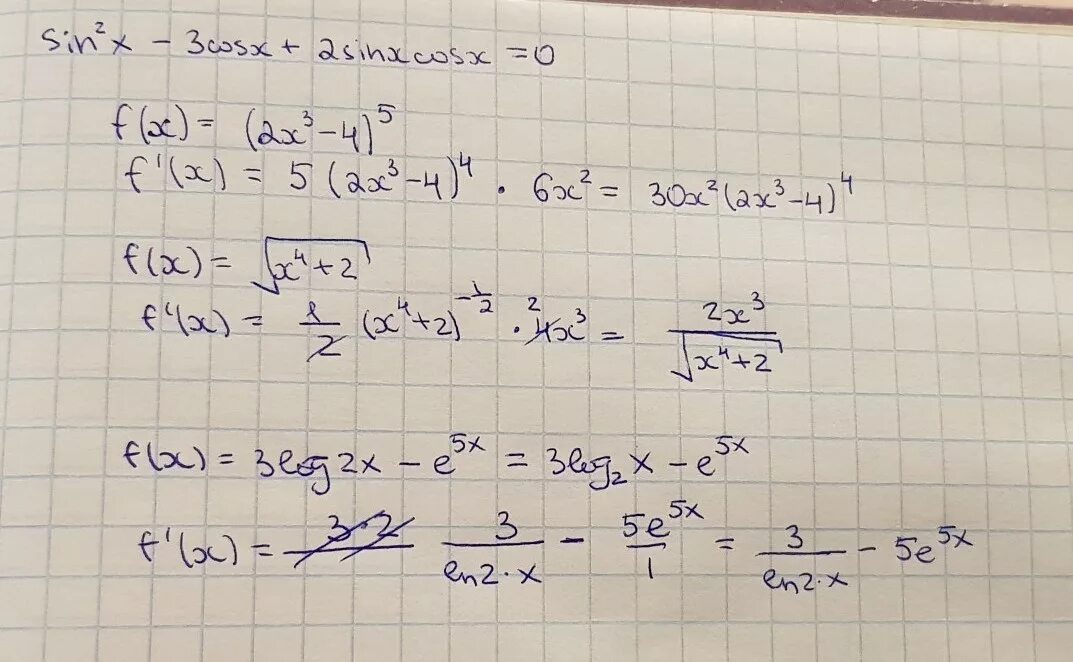 sin²x − 3cosx + 2sinxcosx = 0
f(x) = (2x³−4)⁵
f'(x) = 5(2x³−4)⁴ · 6x² = 30x²(2x³−4)⁴
f(x) = √(x⁴+2)
f'(x) = 1/2 (x⁴+2)^(-1/2) · ²4x³ = 2x³/√(x⁴+2)
f(x) = 3log2x − e^(5x) = 3log₂x − e^(5x)
f'(x) = 3·2 3/(ln2·x) − 5e^(5x)/1 = 3/(ln2·x) − 5e^(5x)